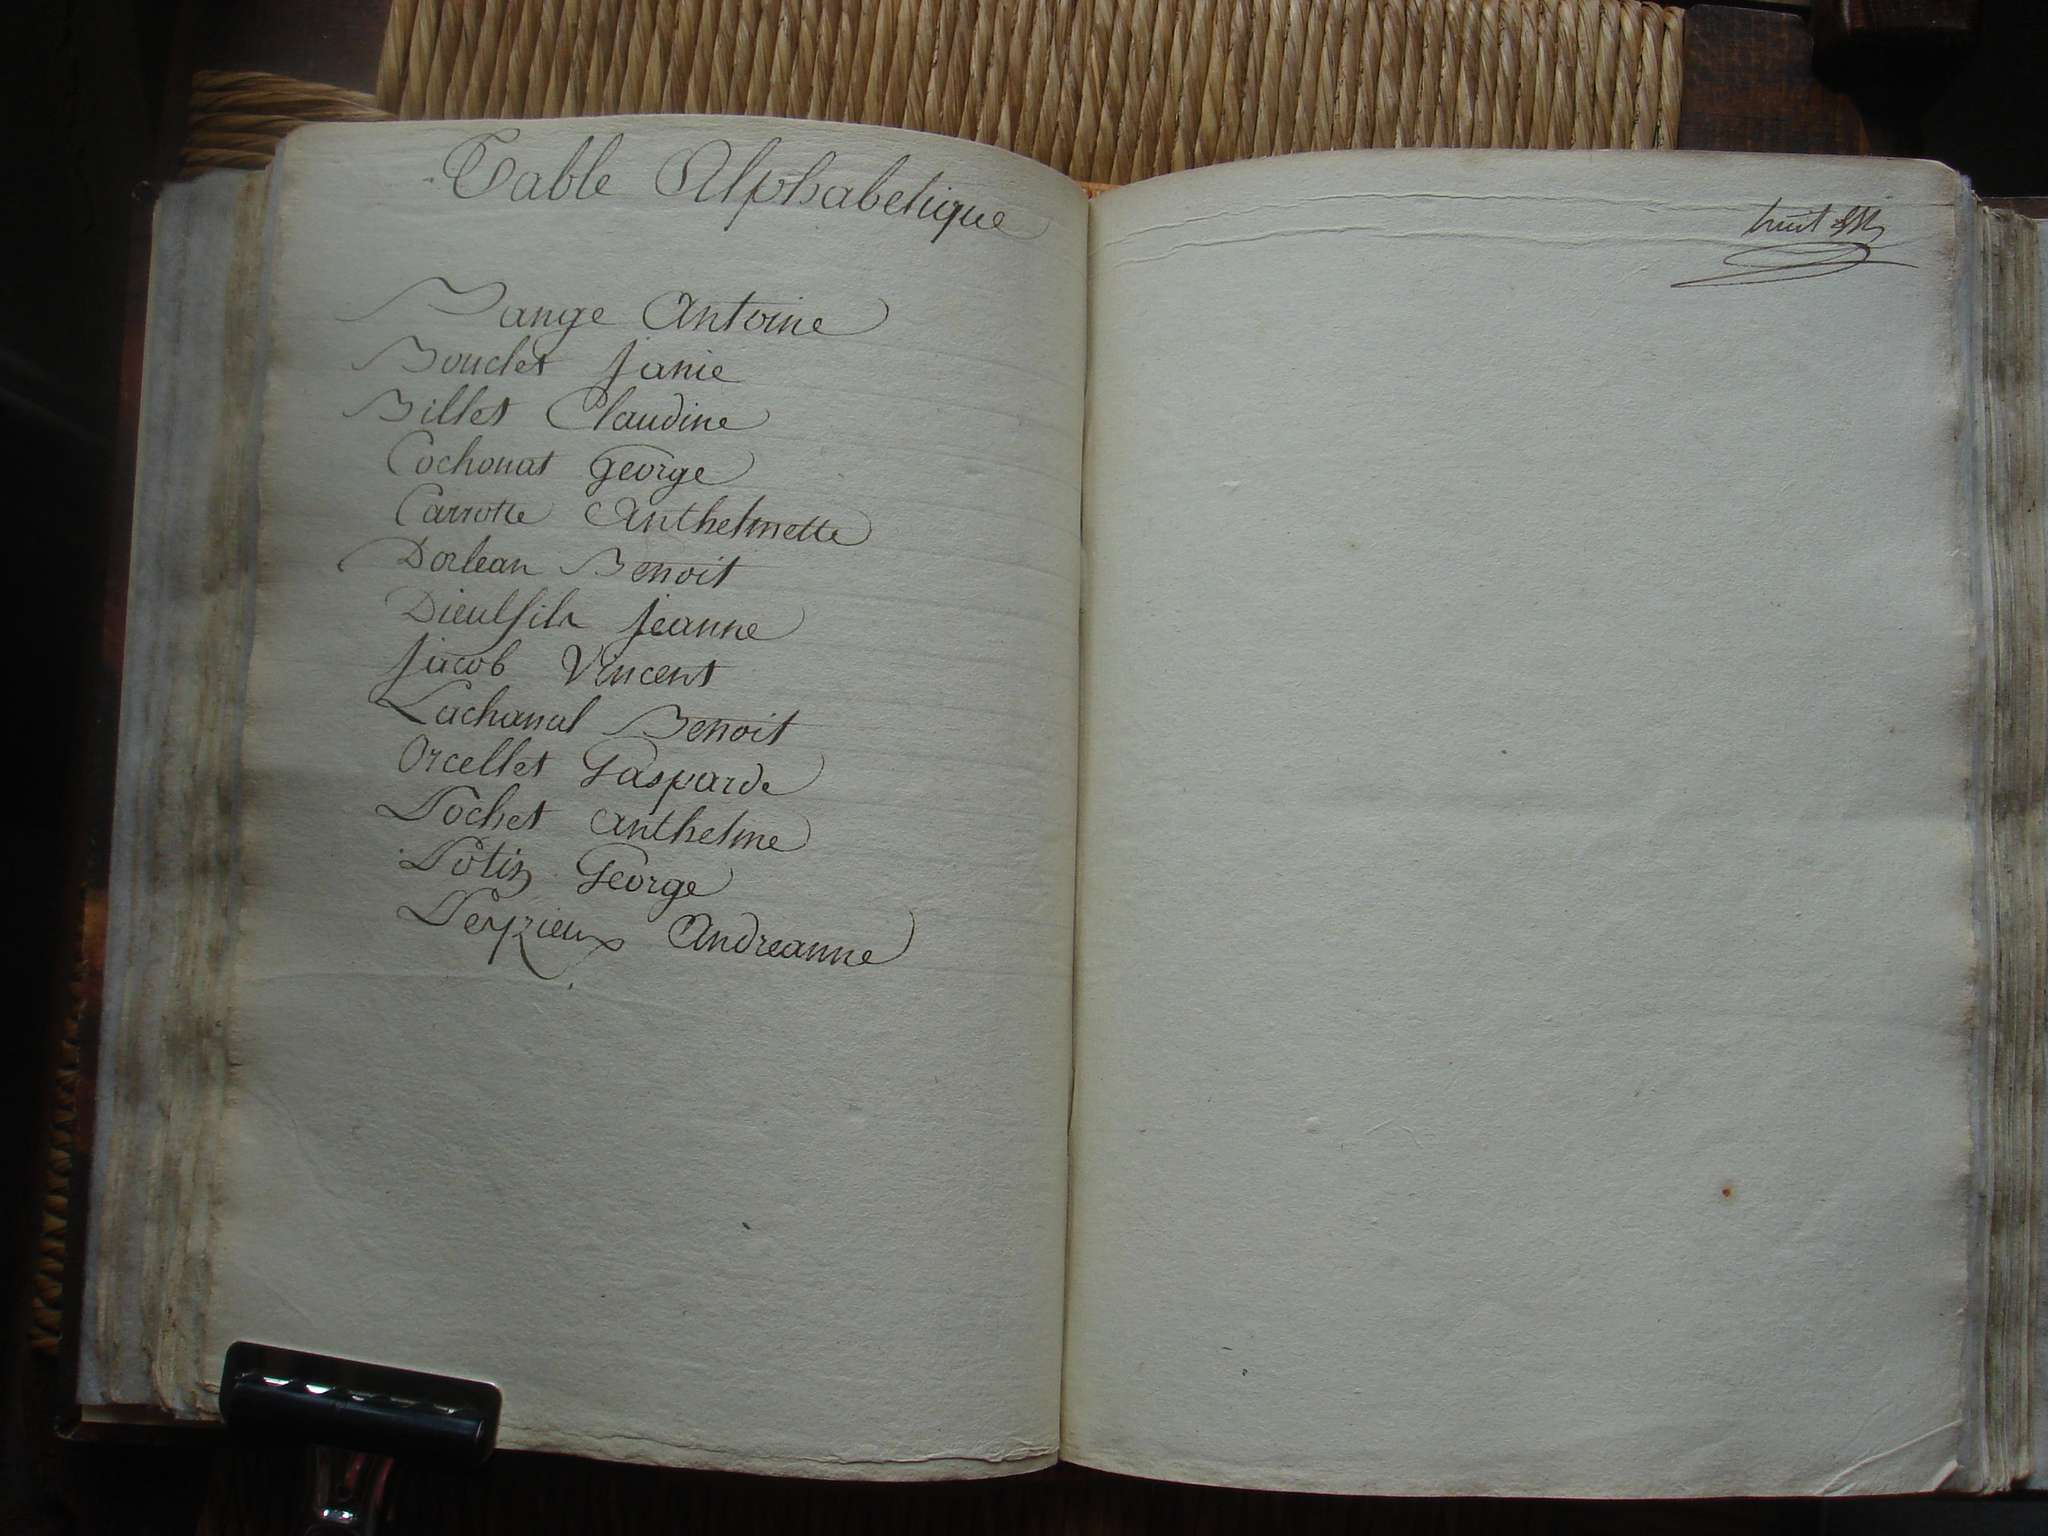 Table Alphabetique
Bange Antoine
Bouclet Janie
Billet Claudine
Cochonat George
Carrotte Anthelmette
Dorlean Benoit
Dieulfils Jeanne
Jacob Vincent
Lachanal Benoit
Orcellet Gasparde
Pochet Anthelme
Potin George
Peyzieux Andreanne
huit